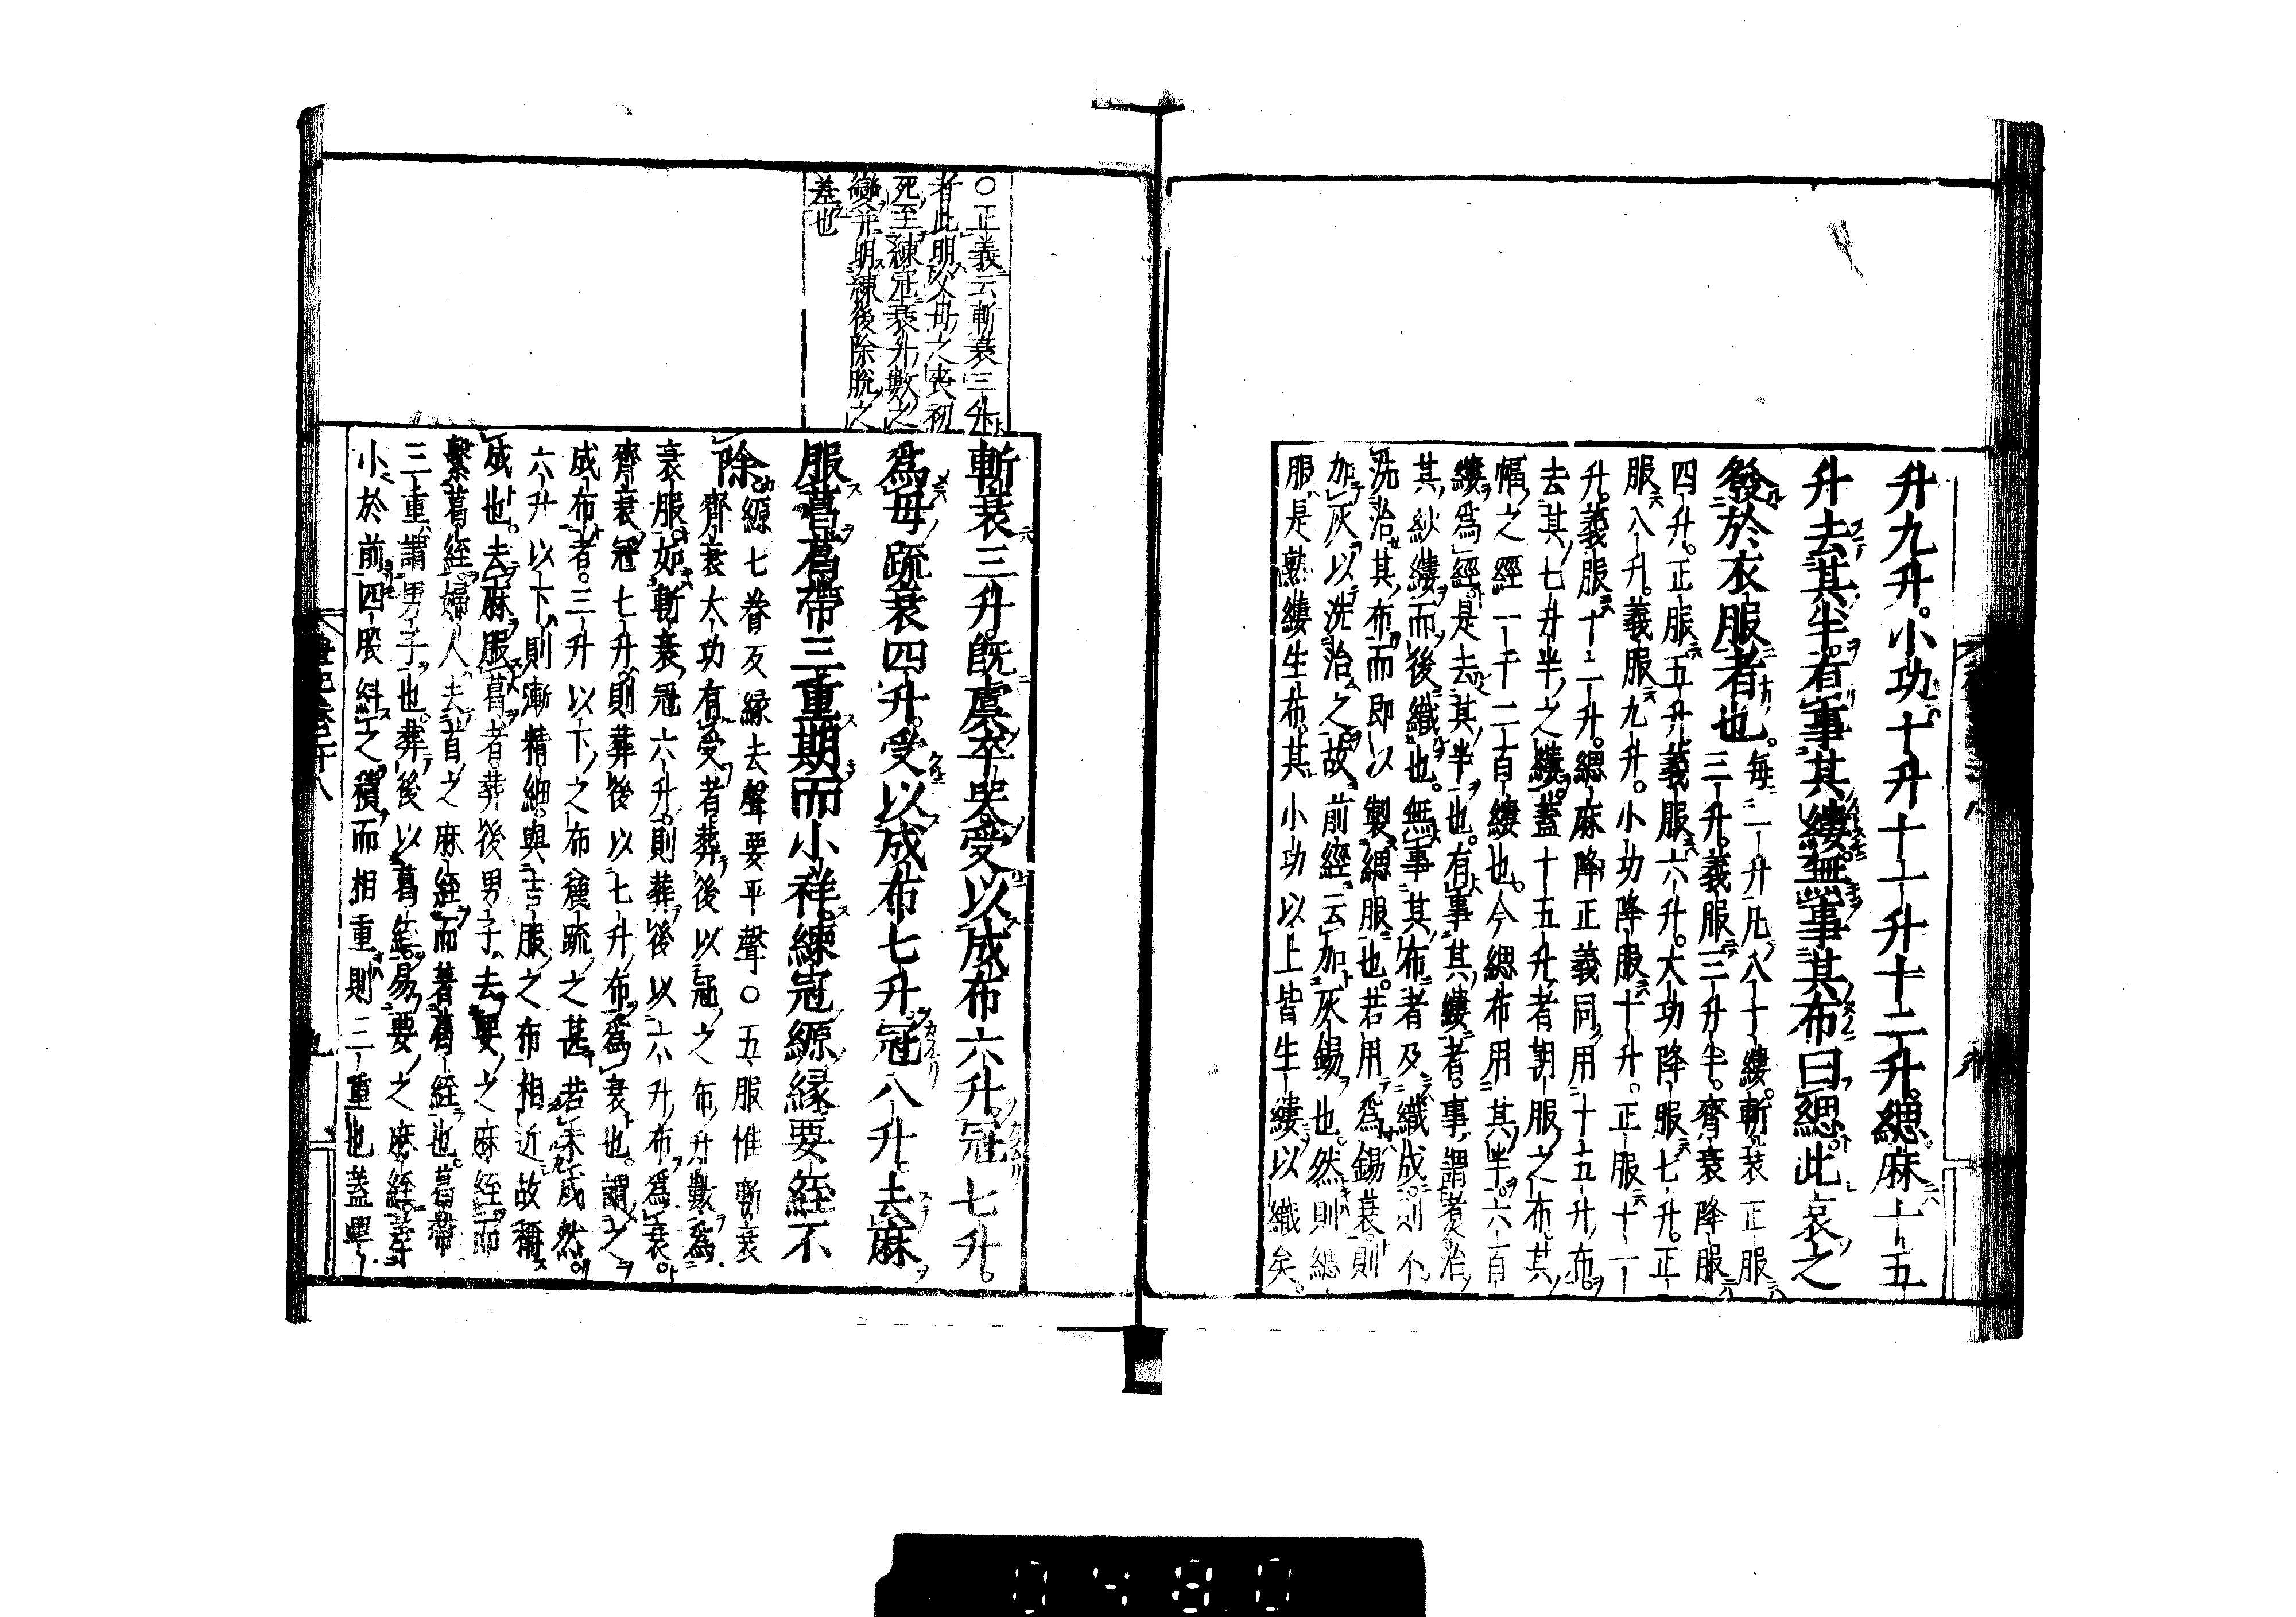 升九升。小功十升十一升十二升。緦麻十五
升去其半。有事其縷無事其布曰緦。此哀之
發於衣服者也。毎一升凡八十縷。斬衰正服
三升。義服三升半。齊衰降服
四升。正服五升。義服六升。大功降服七升。正
服八升。義服九升。小功降服十升。正服十一
升。義服十二升。緦麻降正義同用十五升布。
去其七升半之縷。蓋十五升者朝服之布。其
幅之經一千二百縷也。今緦布用其半。六百
縷爲經。是去其半也。有事其縷者。事謂煑治
其紗縷而後織也。無事其布者及織成。則不
洗治其布而即以製緦服也。若用爲錫衰則
加灰以洗治之。故前經云加灰錫也。然則緦
服是熟縷生布。其小功以上皆生縷以織矣。
○正義云斬衰三升
者此明以父母之喪初
死至練冠衰升數之
變并明練後除脫之
差也
斬衰三升。既虞卒哭受以成布六升。冠七升。
爲母疏衰四升。受以成布七升冠八升去麻
服葛葛帶三重期而小祥練冠縓縁要絰不
除縓七眷反縁去聲要平聲○五服惟斬衰
齊衰大功有受者。葬後以冠之布升數爲
衰服。如斬衰冠六升。則葬後以六升布爲衰。
齊衰冠七升。則葬後以七升布爲衰也。謂之
成布者。三升以下之布麁疏之甚若未成然。
六升以下則漸精細。與吉服之布相近故稱
成也。去麻服葛者。葬後男子去要之麻絰而
繫葛絰。婦人去首之麻絰而著葛絰也。葛帶
三重謂男子也。葬後以葛絰易要之麻絰。差
小於前四股糾之積而相重則三重也蓋單
禮記卷二十八
九